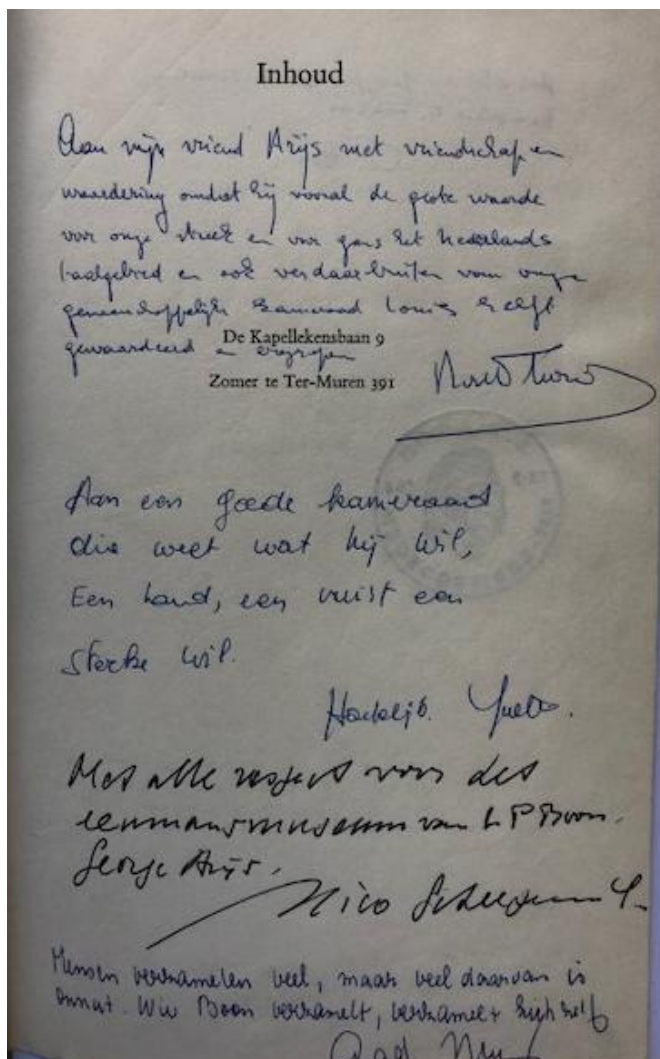 Inhoud
Aan mijn vriend Arijs met vriendschap en
waardering omdat hij vooral de grote waarde
voor onze streek en voor gans het Nederlands
taalgebied en ook verdaarbuiten van onze
gemeenschappelijke kameraad Louis heeft
gewaardeerd en begrepen
De Kapellekensbaan 9
Zomer te Ter-Muren 391
Aan een goede kameraad
die weet wat hij wil,
Een hand, een vuist een
sterke wil.
Hartelijk.
Met alle respect voor het
eenmansmuseum van L P Boon.
George Arijs.
Nico
Mensen verzamelen veel, maar veel daarvan is
onnut. Wie Boon verzamelt, verzamelt zichzelf